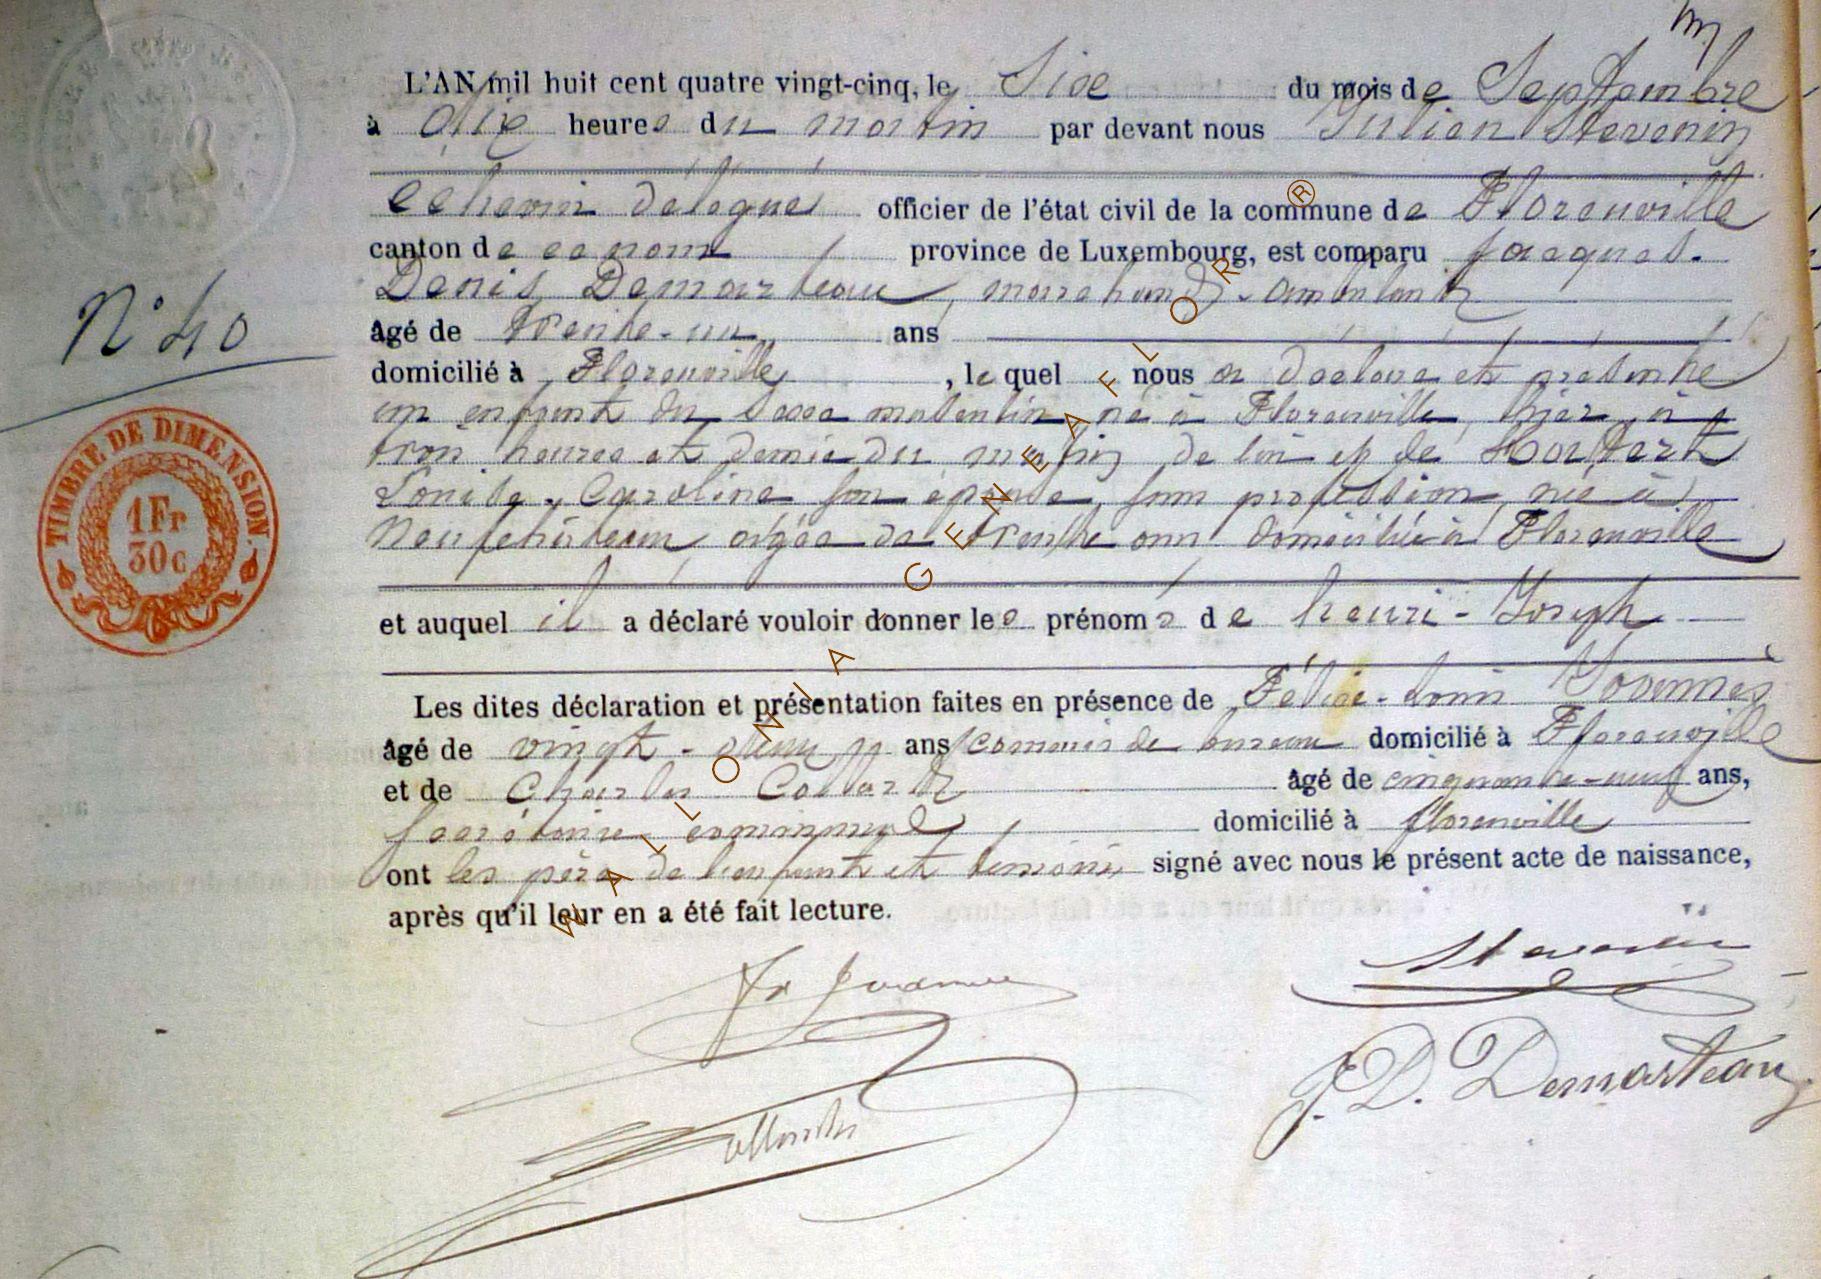 L'AN mil huit cent quatre vingt-cinq, le Six du mois de Septembre
à dix heures du matin par devant nous Julien Stevenin
échevin délégué officier de l'état civil de la commune de Florenville
canton de ce nom province de Luxembourg, est comparu Jacques-
Denis Demarteau, marchand-ambulant
N° 40
âgé de trente-un ans
domicilié à Florenville, le quel nous a déclaré et présenté
un enfant du sexe masculin né à Florenville, hier, à
trois heures et demie du matin de lui et de
Louise-Caroline son épouse, sans profession, née à
Neufchâteau, âgée de trente ans domiciliée à Florenville
TIMBRE DE DIMENSION.
1Fr
30c
et auquel il a déclaré vouloir donner les prénoms de henri-Joseph
Les dites déclaration et présentation faites en présence de Félix-Louis
âgé de vingt-deux ans commis de bureau domicilié à Florenville
et de Charles Collard âgé de cinquante-neuf ans,
secrétaire communal domicilié à florenville
ont les père de l'enfant et témoins signé avec nous le présent acte de naissance,
après qu'il leur en a été fait lecture.
Stevenin
J. D. Demarteau
WALLONIA GENEAFLOR ®